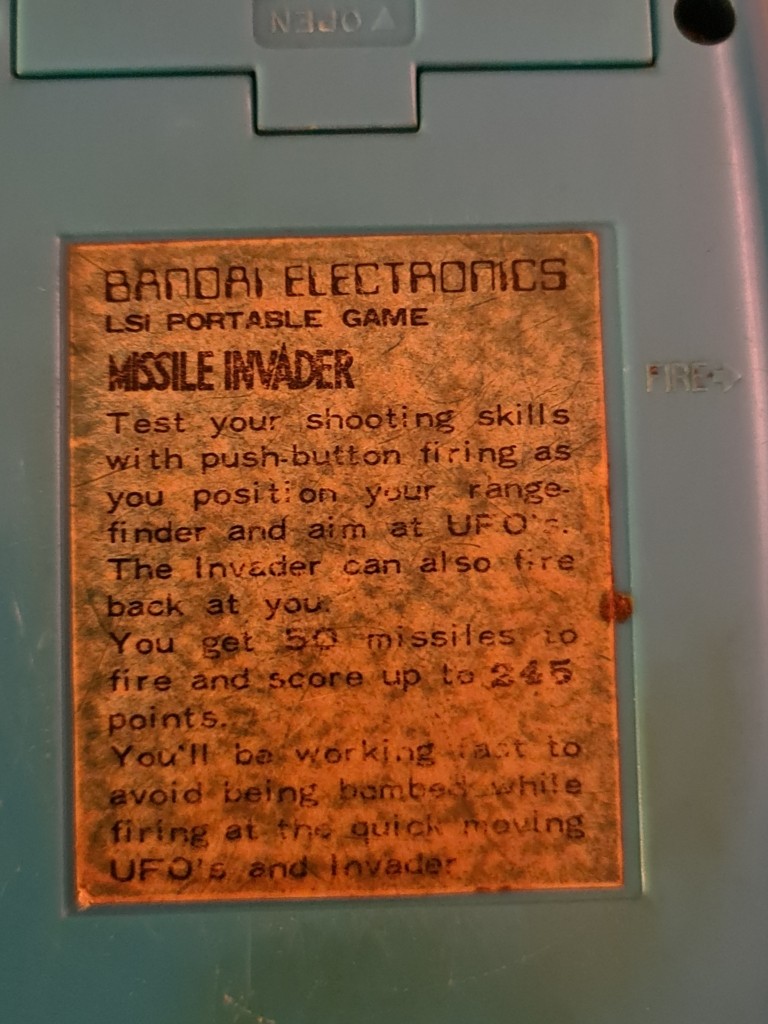 OPEN
BANDAI ELECTRONICS
LSI PORTABLE GAME
MISSILE INVADER
FIRE
Test your shooting skills
with push-button firing as
you position your range-
finder and aim at UFO's.
The Invader can also fire
back at you.
You get 50 missiles to
fire and score up to 245
points.
You'll be working fast to
avoid being bombed while
firing at the quick moving
UFO's and Invader.